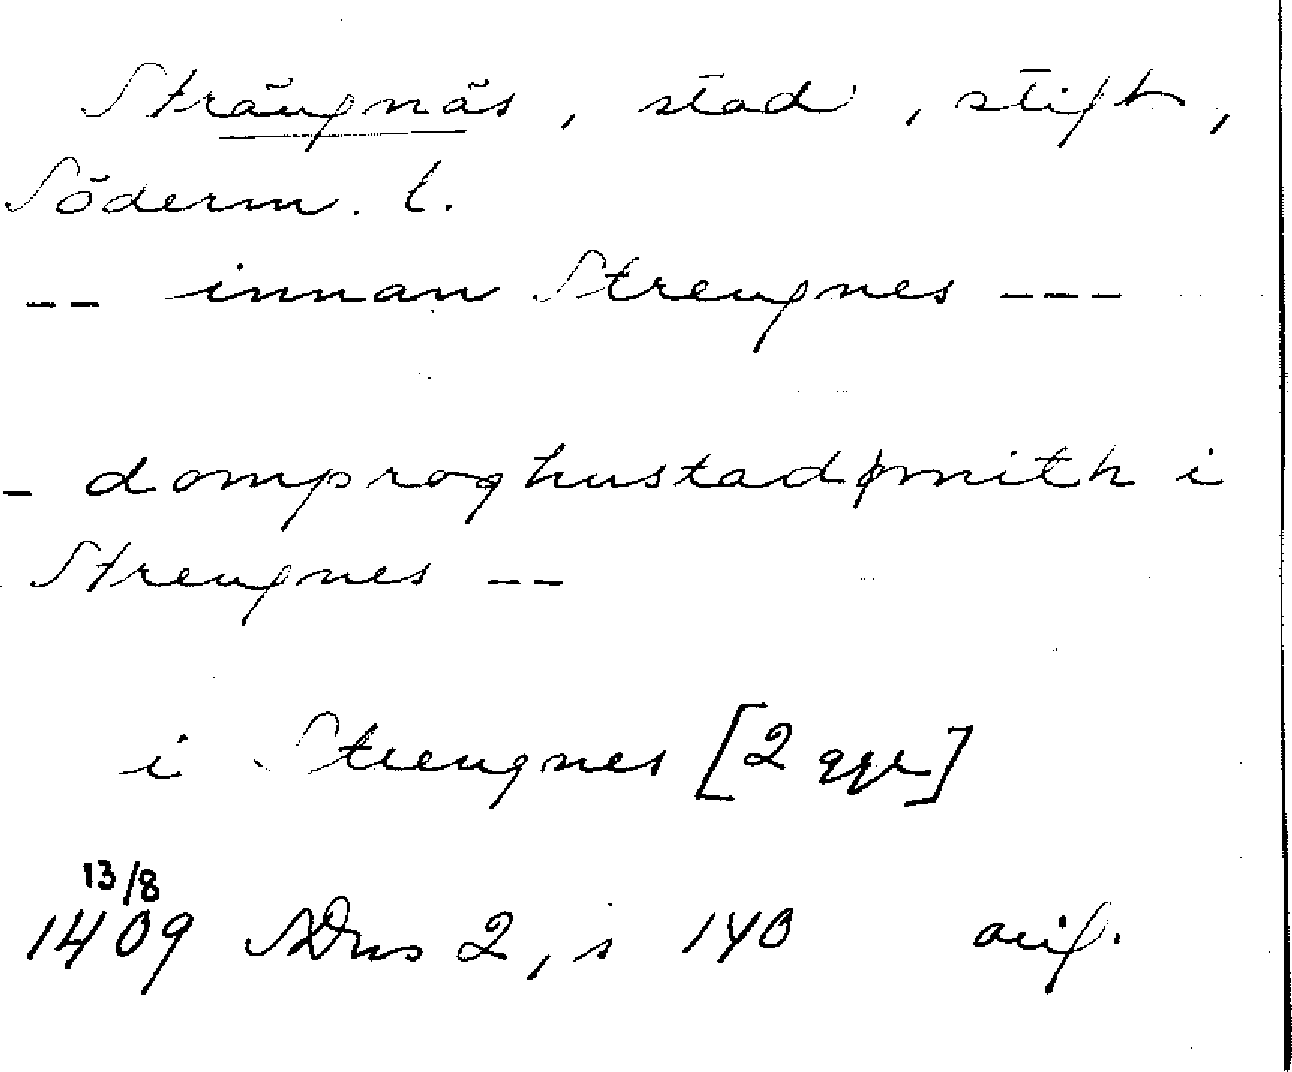 Strängnäs, stad, stift,
Söderm. l.
-- innan Strengnes ---
- domproghustad i
Strengnes --
i Strengnes [2 ggr]
13/8
1409 SDns 2, s 140 orig.